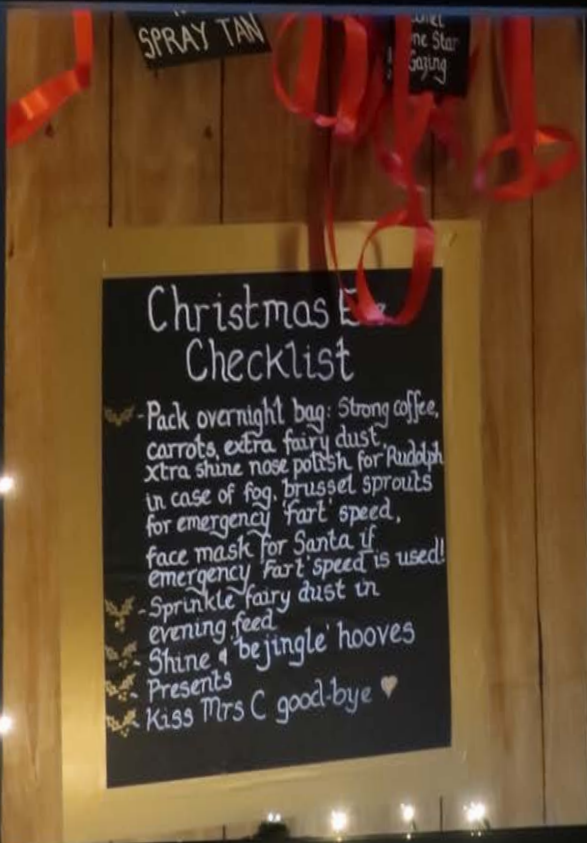 SPRAY TAN
ne Star
Gazing
Christmas E
Checklist
- Pack overnight bag: Strong coffee,
carrots, extra fairy dust,
xtra shine nose polish for Rudolph
in case of fog, brussel sprouts
for emergency 'fart' speed,
face mask for Santa if
emergency 'Fart' speed is used!
- Sprinkle fairy dust in
evening feed
- Shine & 'bejingle' hooves
- Presents
- Kiss Mrs C good-bye